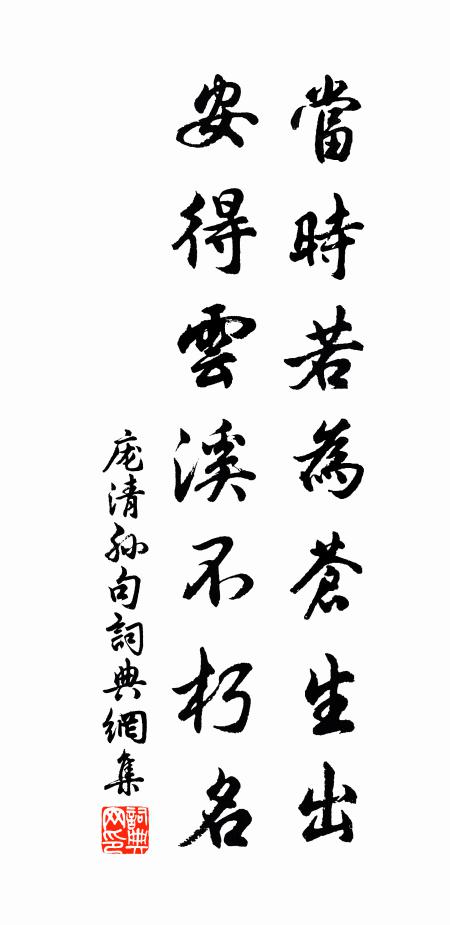 當時若為蒼生出
安得雲溪不朽名
庞清孙句詞典網集
詞典網印